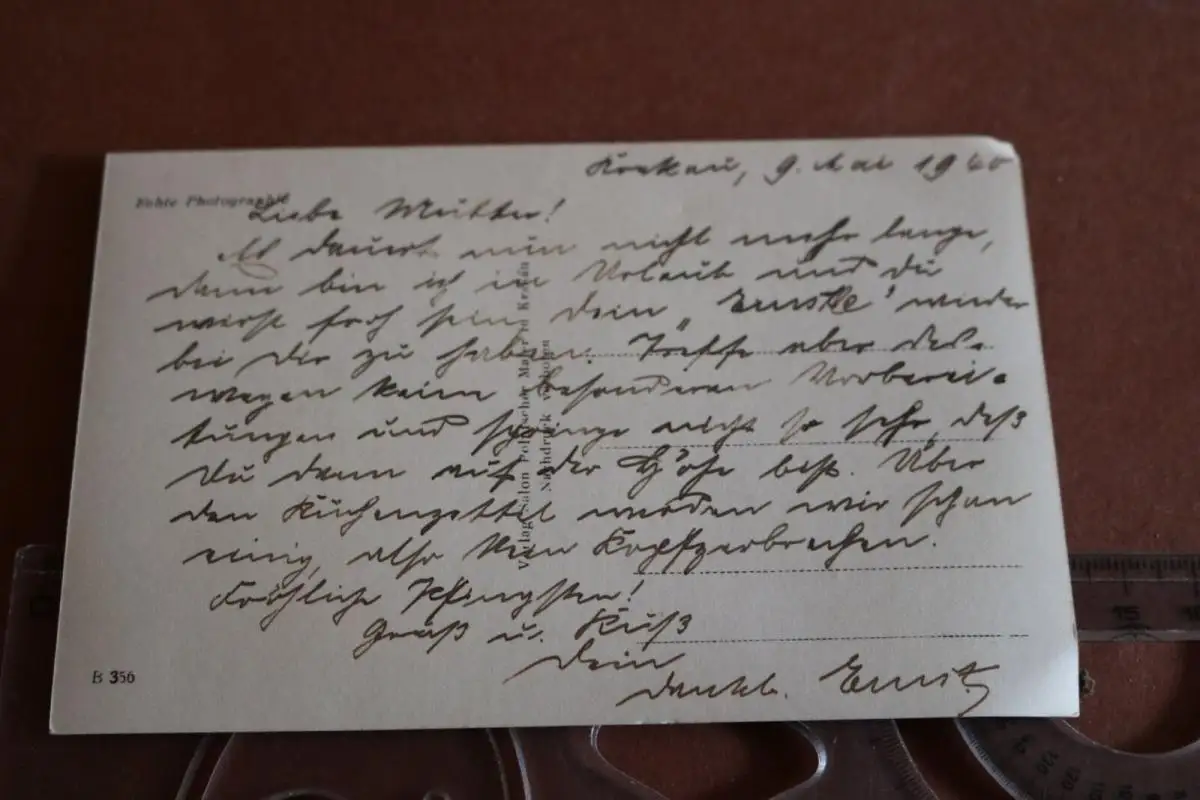 Krakau, 9. Mai 1940
Echte Photographie
Liebe Mutter!
Es dauert nun nicht mehr lange,
dann bin ich in Urlaub und du
wirst froh sein, dein „Ernstle" wieder
bei dir zu haben. Treffe aber des-
wegen keine besonderen Vorberei-
tungen und springe nicht so sehr, daß
Du dann auf der Höhe bist. Über
den Küchenzettel werden wir schon
einig, also kein Kopfzerbrechen.
Fröhliche Pfingsten!
Gruß u. Kuß
Dein
dankb. Ernst
Verlag Salon Polnischer Maler in Krakau
Nachdruck verboten
B 356
15